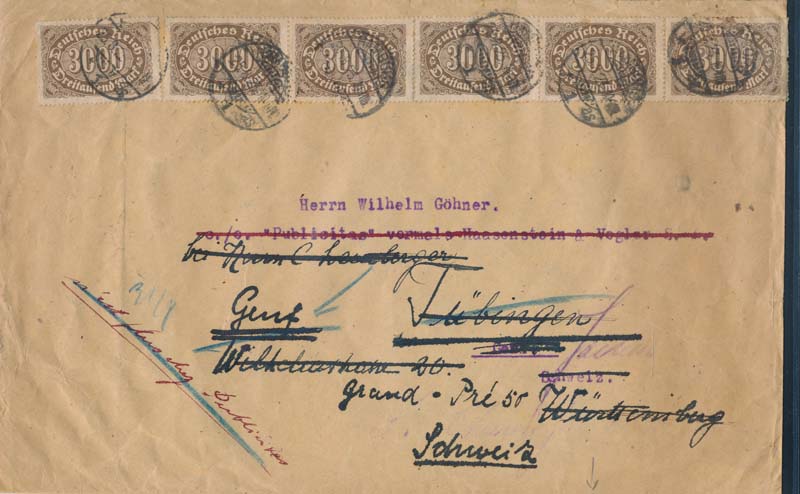 Deutsches Reich 3000 Dreitausend Mark
Deutsches Reich 3000 Dreitausend Mark
Deutsches Reich 3000 Dreitausend Mark
Deutsches Reich 3000 Dreitausend Mark
Deutsches Reich 3000 Dreitausend Mark
Deutsches Reich 3000 Dreitausend Mark
Herrn Wilhelm Göhner.
c./o. "Publicitas" vormals Haasenstein & Vogler S. A.
bei Herrn C
Genf Tübingen
Wilhelmstrasse 20
Schweiz.
Grand-Pré 50 Württemberg
Schweiz
Publicitas